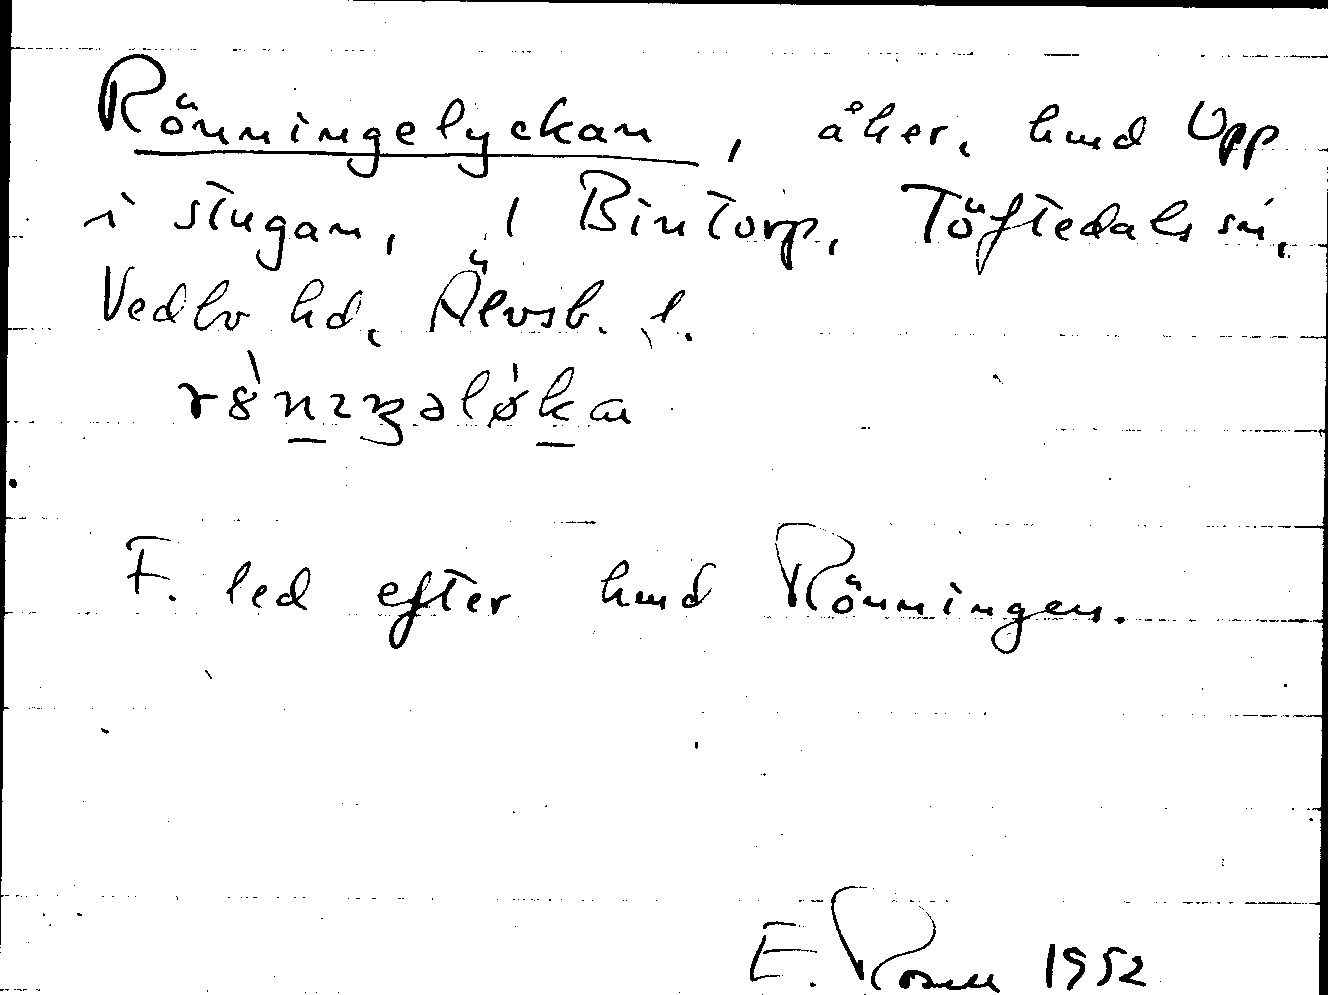 Rönningelyckan, åker, hmd Upp
i stugan, 1 Bintorp, Töftedals sn,
Vedbo hd, Älvsb. l.
F. led efter hmd Rönningen.
E. Rosell 1952